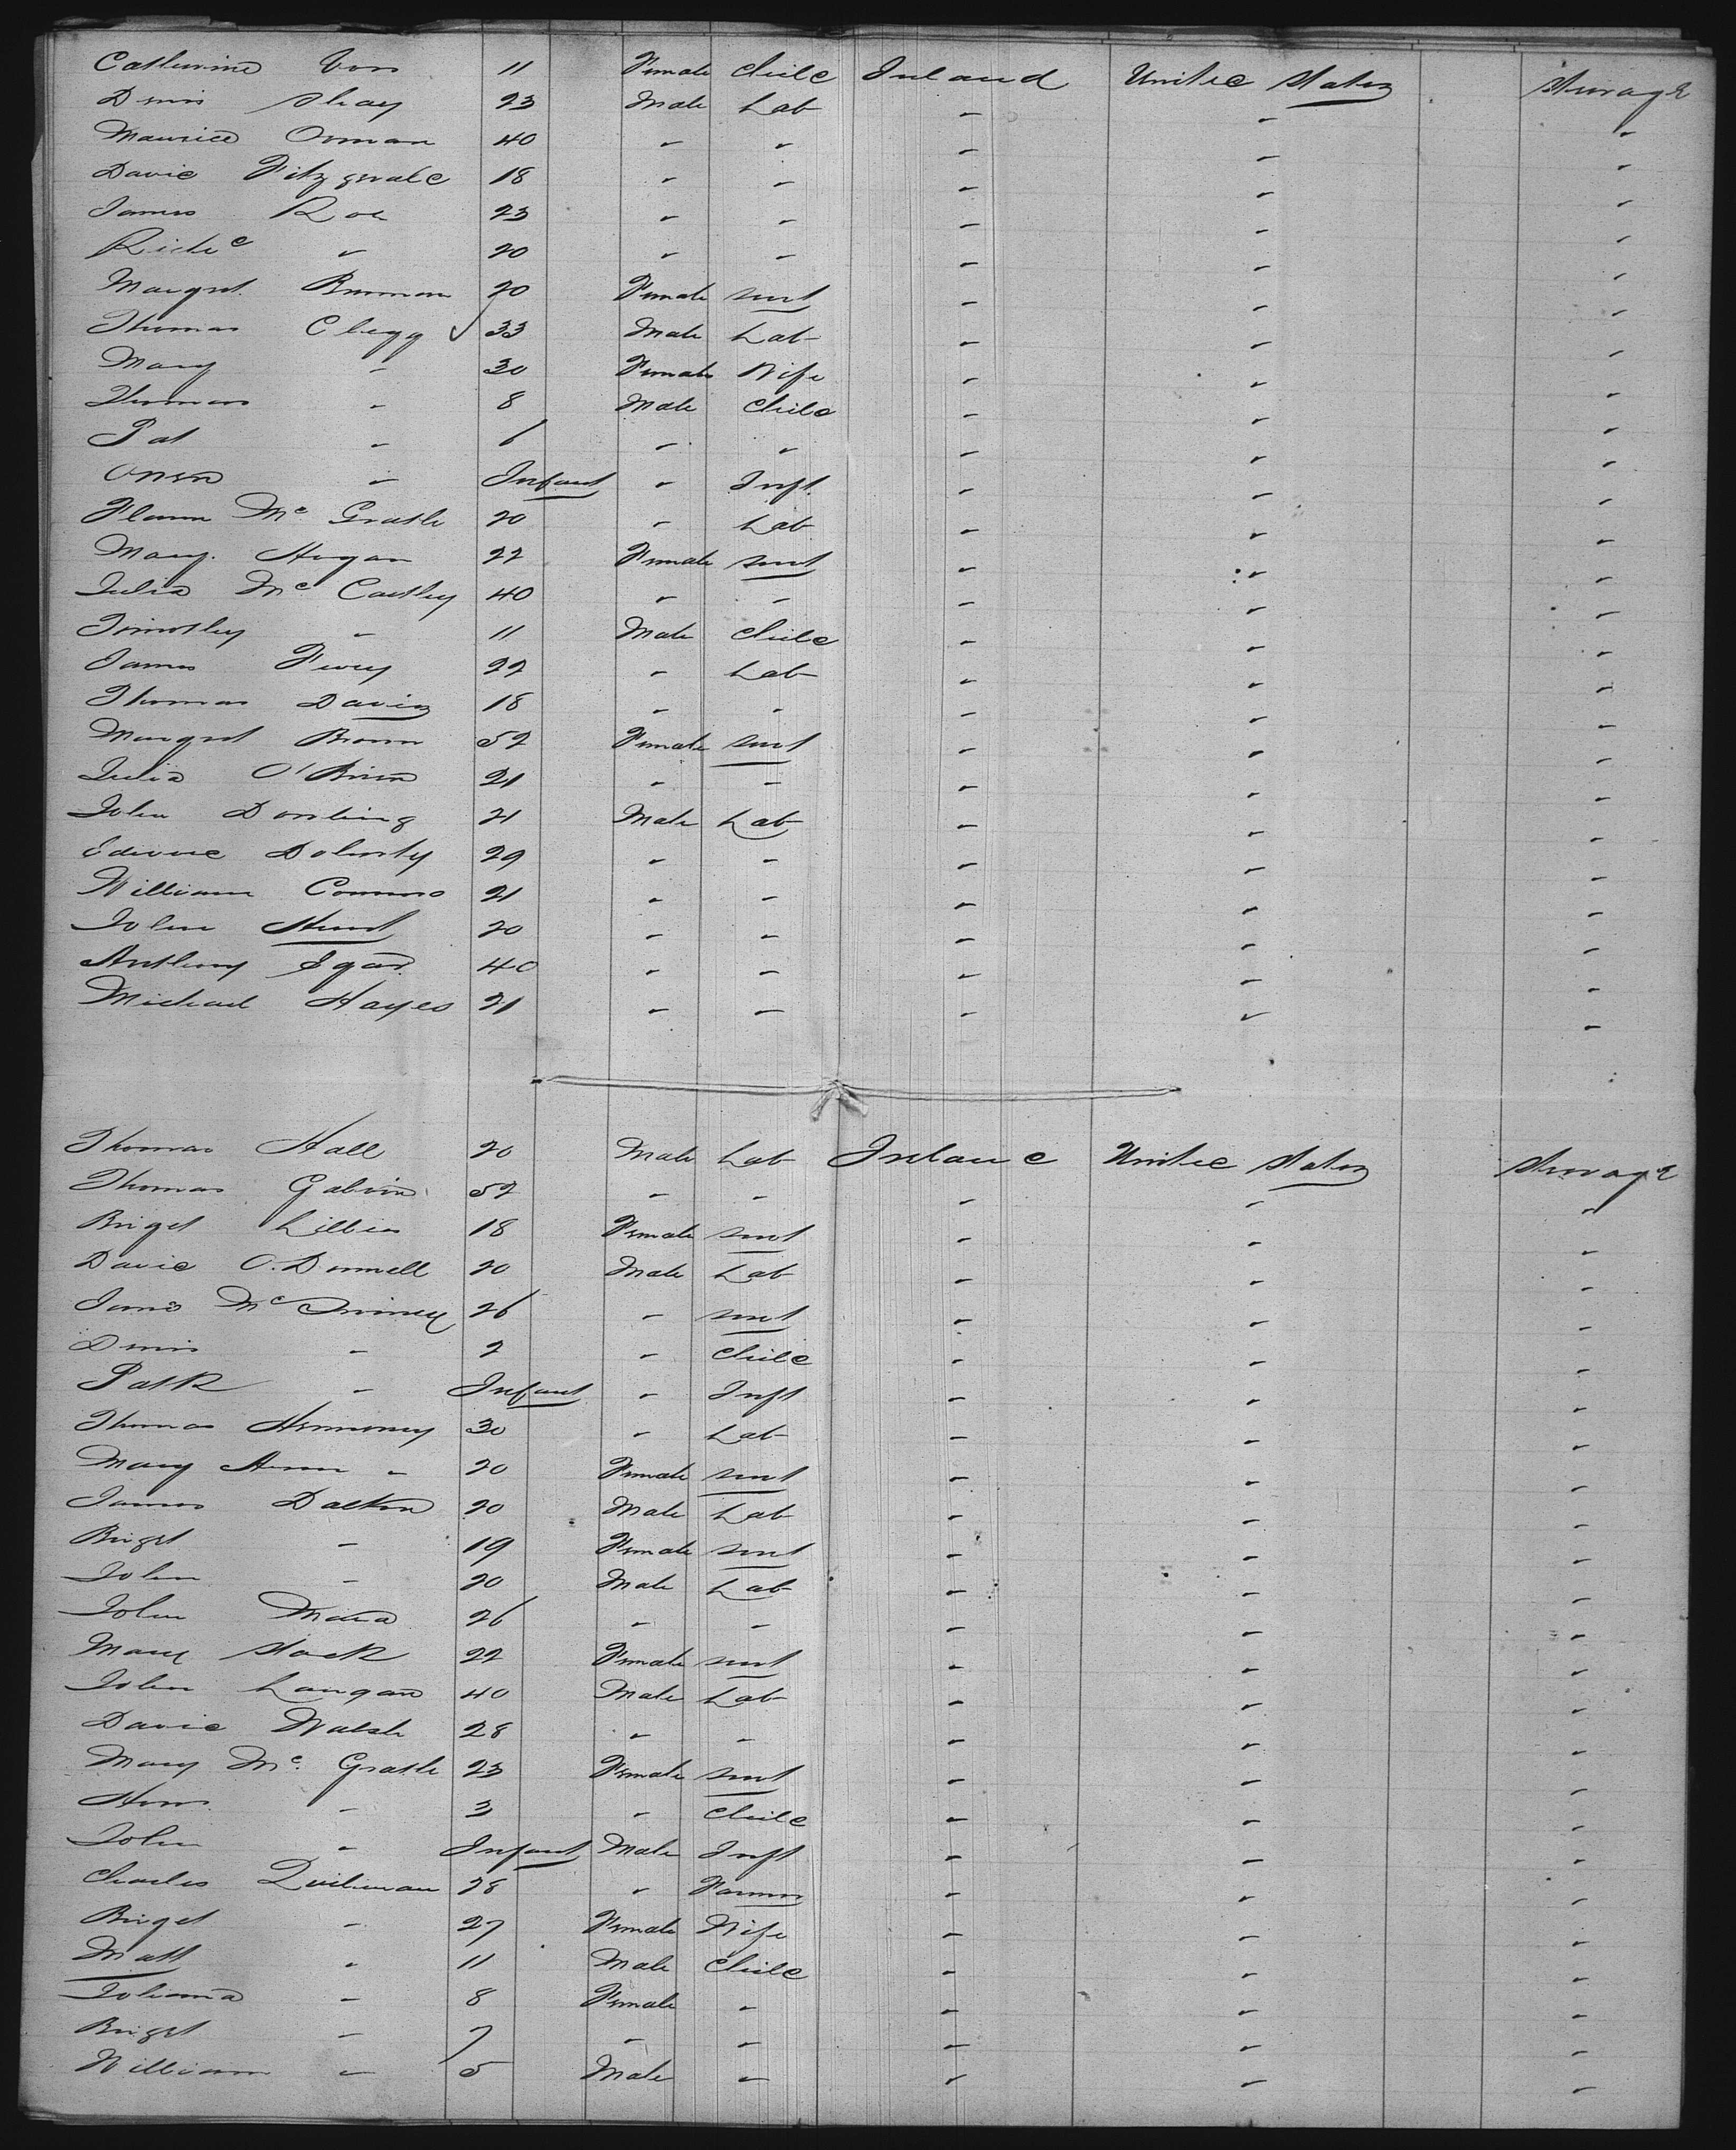 Catherine 11 Female Child Ireland United States Steerage
Denis Shay 23 Male Lab " " "
Maurice 40 " " " " "
David Fitzgerald 18 " " " " "
James Roe 23 " " " " "
Richd " 20 " " " " "
Margret 20 Female Servt " " "
Thomas Clegg ✓ 33 Male Lab " " "
Mary " 30 Female Wife " " "
Thomas " 8 Male Child " " "
Pat " 6 " " " " "
Owen " Infant " Inft. " " "
McGrath 20 " Lab " " "
Mary Hogan 22 Female Servt " " "
Julia McCarthy 40 " " " " "
Timothy " 11 Male Child " " "
James 22 " Lab " " "
Thomas Davis 18 " " " " "
Margret Brown 52 Female Servt " " "
Julia O'Brien 21 " " " " "
John Dowling 21 Male Lab " " "
Edward Doherty 29 " " " " "
William Connors 21 " " " " "
John Hunt 20 " " " " "
Anthony Egan 40 " " " " "
Michael Hayes 21 " " " " "
Thomas Hall 20 Male Lab Ireland United States Steerage
Thomas Galvin 52 " " " " "
Briget Lillis 18 Female Servt " " "
David O.Donnell 20 Male Lab " " "
26 " Servt " " "
Denis " 2 " Child " " "
Patk " Infant " Inft " " "
Thomas 30 " Lab " " "
Mary Ann " 20 Female Servt " " "
James Dalton 20 Male Lab " " "
Briget " 19 Female Servt " " "
John " 20 Male Lab " " "
John Mara 26 " " " " "
Mary Stack 22 Female Servt " " "
John Langan 40 Male Lab " " "
David Walsh 28 " " " " "
Mary McGrath 23 Female Servt " " "
Ann " 3 " Child " " "
John " Infant Male Inft " " "
Charles 28 " Farmer " " "
Briget " 27 Female Wife " " "
Matt " 11 Male Child " " "
Johanna " 8 Female " " " "
Briget " 7 " " " " "
William " 5 Male " " " "